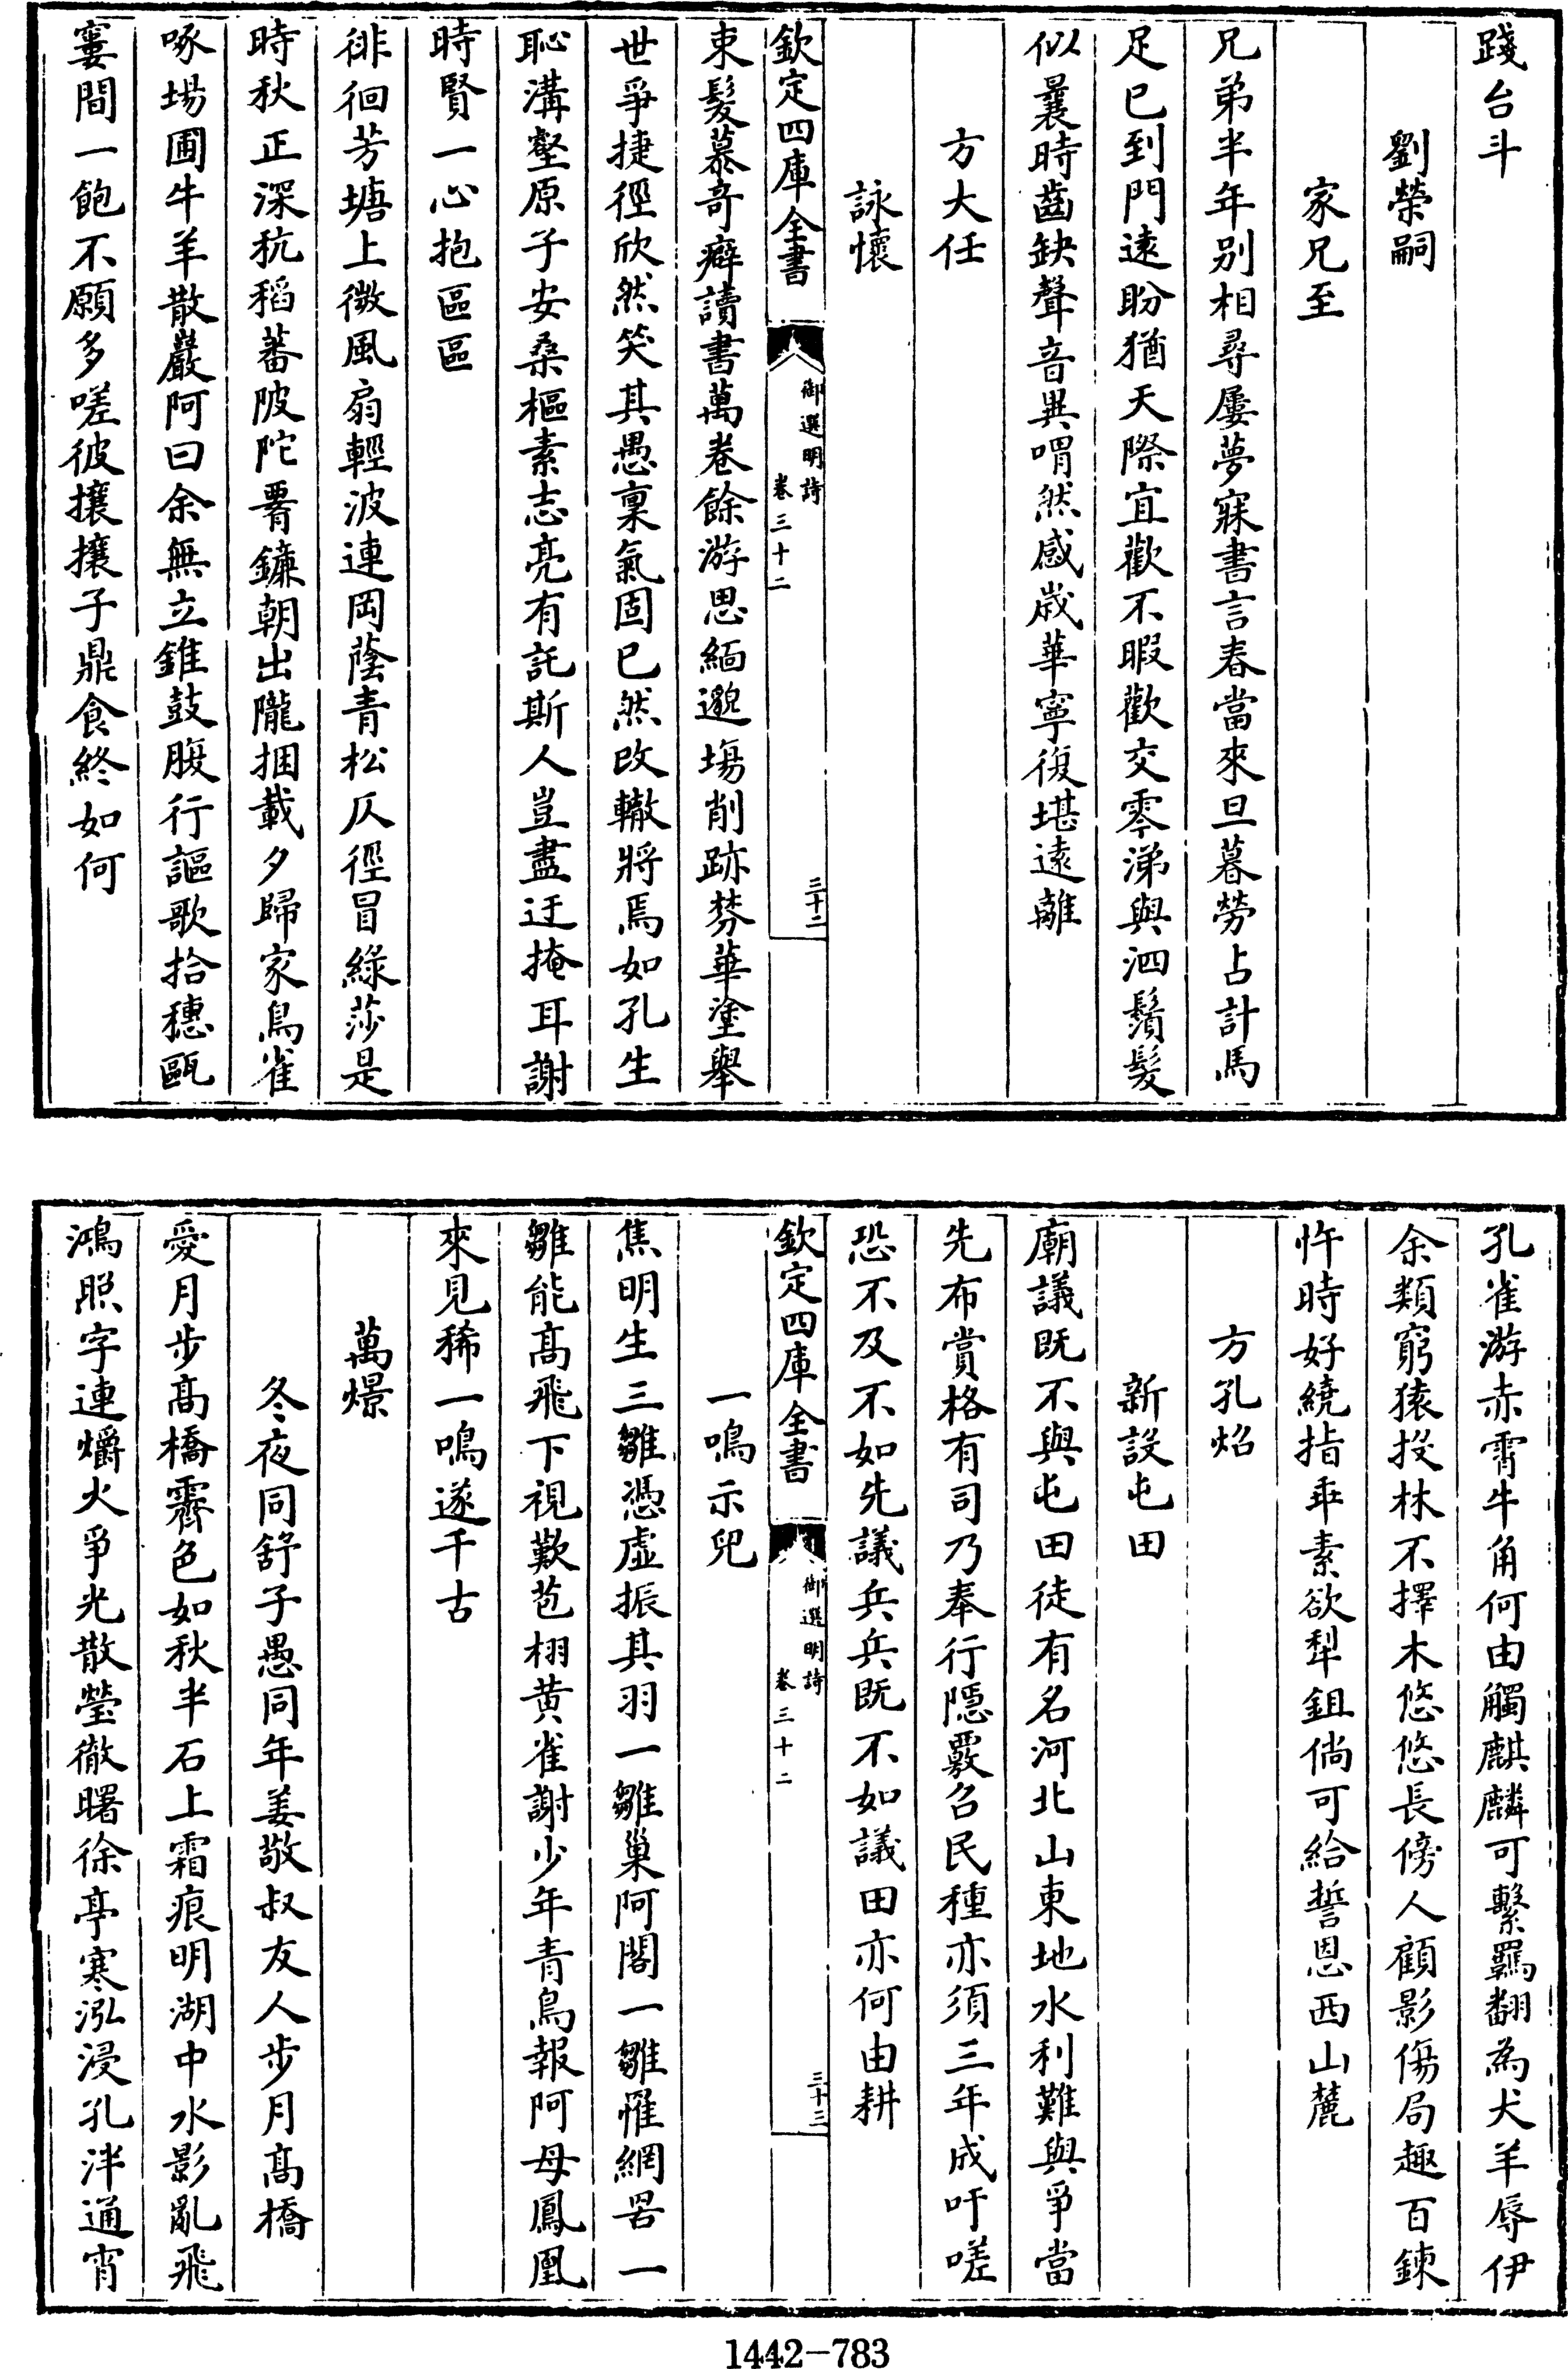 踐台斗
劉榮嗣
家兄至
兄弟半年别相尋屢夢寐書言春當來旦暮勞占計馬
足已到門遠盼猶天際宜歡不暇歡交零涕與泗鬚髮
似曩時齒缺聲音異喟然感歲華寧復堪遠離
方大任
詠懷
欽定四庫全書
御選明詩
卷三十二
三十二
束髪慕奇癖讀書萬卷餘游思緬邈場削跡棼華塗舉
世爭捷徑欣然笑其愚稟氣固已然改轍將焉如孔生
恥溝壑原子安桑樞素志亮有託斯人豈盡迂掩耳謝
時賢一心抱區區
徘徊芳塘上微風扇輕波連岡蔭青松仄徑冒綠莎是
時秋正深秔稻蕃陂陀䍤鐮朝出隴捆載夕歸家鳥雀
啄場圃牛羊散巖阿曰余無立錐鼓腹行謳歌拾穗甌
窶間一飽不願多嗟彼攘攘子鼎食終如何
孔雀游赤霄牛角何由觸麒麟可繫羈翻為犬羊辱伊
余類窮猿投林不擇木悠悠長傍人顧影傷局趣百鍊
忤時好繞指乖素欲犁鉏倘可給誓恩西山麓
方孔炤
新設屯田
廟議既不與屯田徒有名河北山東地水利難與爭當
先布賞格有司乃奉行隱覈召民種亦須三年成吁嗟
恐不及不如先議兵兵既不如議田亦何由耕
欽定四庫全書
御選明詩
卷三十二
三十三
一鳴示兒
焦明生三雛憑虛振其羽一雛巢阿閣一雛罹網罟一
雛能髙飛下視歎苞栩黄雀謝少年青鳥報阿母鳳凰
來見稀一鳴遂千古
萬燝
冬夜同舒子愚同年姜敬叔友人步月髙橋
愛月步髙橋霽色如秋半石上霜痕明湖中水影亂飛
鴻照字連爝火爭光散瑩徹曙徐亭寒泓浸孔泮通宵
1442-783